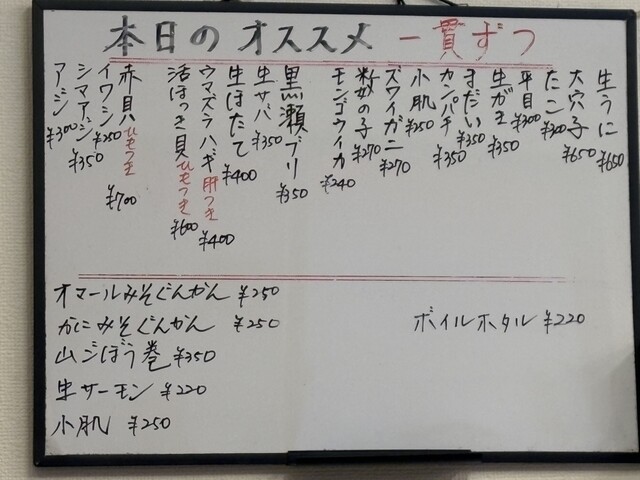 本日のオススメ 一貫ずつ
生うに ¥650
大穴子 ¥650
たこ ¥300
平目 ¥300
生がき ¥350
まだい ¥350
カンパチ ¥350
小肌 ¥250
ズワイガニ ¥270
数の子 ¥270
モンゴウイカ ¥240
黒瀬ブリ ¥350
生サバ ¥350
生ほたて ¥400
ウマズラハギ 肝つき ¥400
活ほっき貝 ひもつき ¥600
赤貝 ひもつき ¥700
イワシ ¥250
シマアジ ¥350
アジ ¥300
オマールみそぐんかん ¥250
かにみそぐんかん ¥250
山ごぼう巻 ¥350
生サーモン ¥220
小肌 ¥250
ボイルホタル ¥220